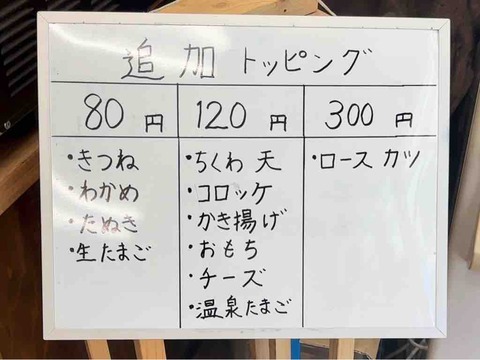 追加 トッピング
80円 120円 300円
・きつね
・わかめ
・たぬき
・生たまご
・ちくわ天
・コロッケ
・かき揚げ
・おもち
・チーズ
・温泉たまご
・ロースカツ